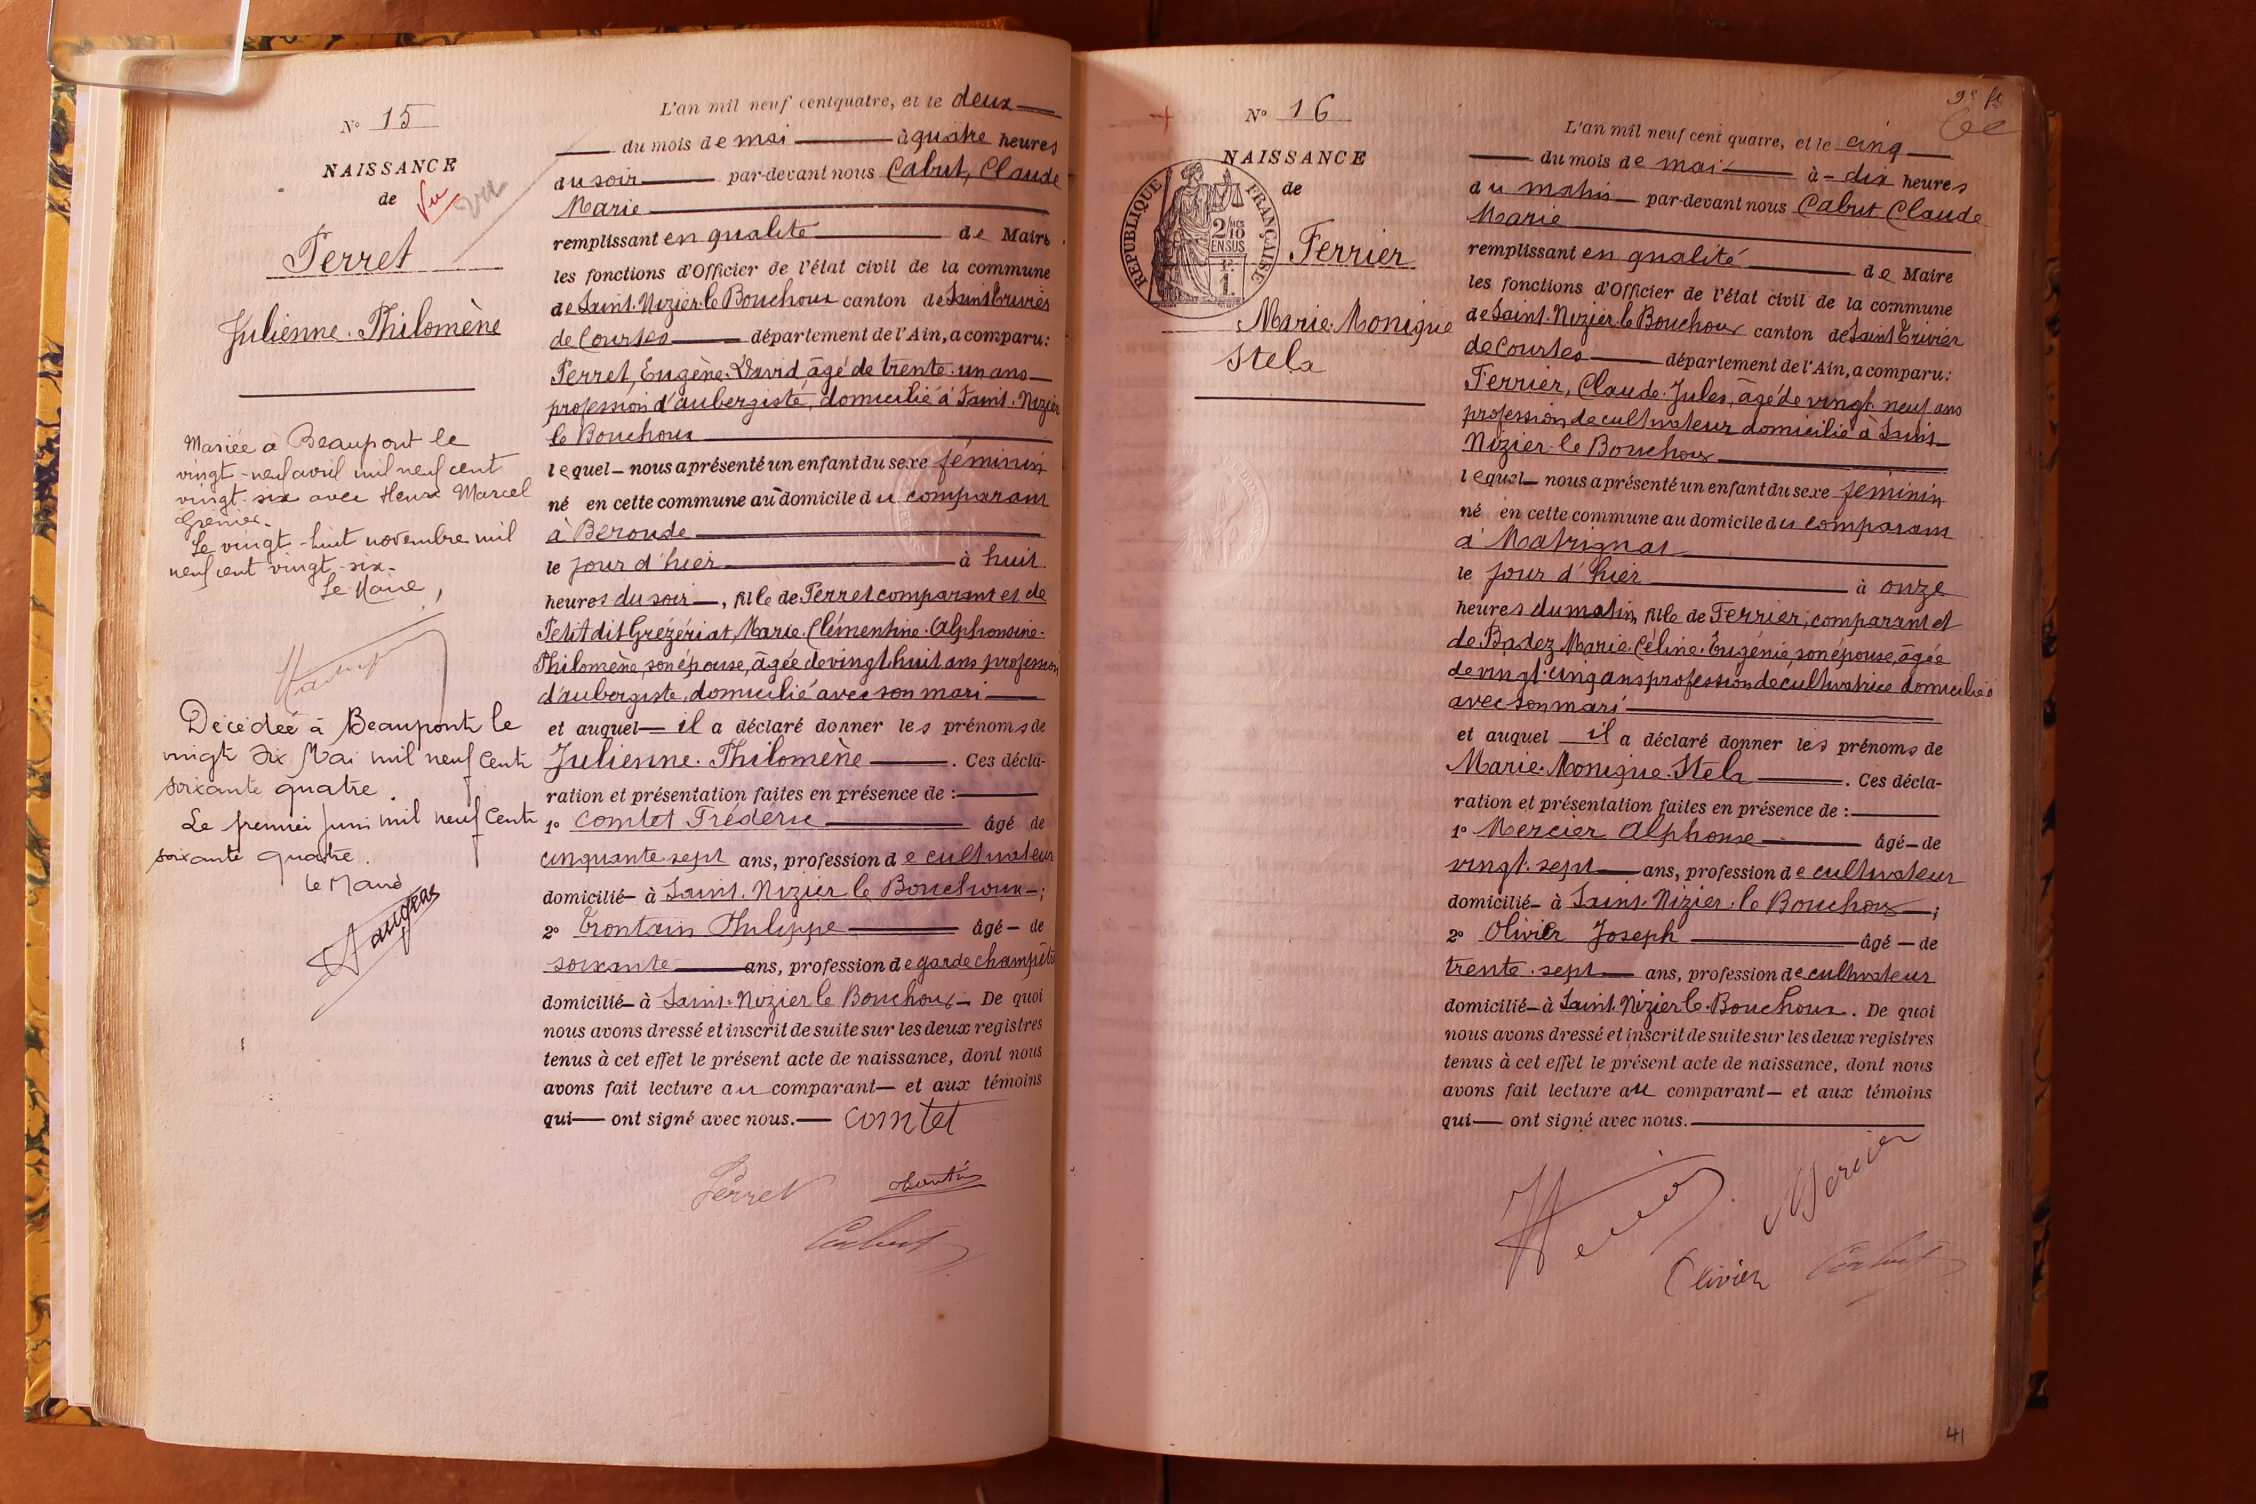 N° 15
NAISSANCE
de
Vu
vu
Perret
Julienne. Philomène
Mariée à Beaupont le
vingt-neuf avril mil neuf cent
vingt six avec Henri Marcel
Grenier.
Le vingt-huit novembre mil
neuf cent vingt-six.
Le Maire,
Décédée à Beaupont le
vingt six Mai mil neuf cent
soixante quatre.
Le premier juin mil neuf cent
soixante quatre.
Le Maire
L'an mil neuf cent quatre, et le deux
du mois de mai à quatre heures
du soir par-devant nous Cabut, Claude
Marie
remplissant en qualité de Maire
les fonctions d'Officier de l'état civil de la commune
de Saint-Nizier-le Bouchoux canton de Saint Triviers
de Courtes département de l'Ain, a comparu:
Perret, Eugène. David âgé de trente-un ans
profession d'aubergiste, domicilié à Saint-Nizier
le Bouchoux
lequel nous a présenté un enfant du sexe féminin
né en cette commune au domicile du comparant
à Beroude
le jour d'hier à huit
heures du soir, fille de Perret comparant et de
Petit dit Grézériat, Marie. Clémentine. Alphonsine.
Philomène, son épouse, âgée de vingt huit ans profession
d'aubergiste, domicilié avec son mari
et auquel il a déclaré donner les prénoms de
Julienne. Philomène. Ces décla-
ration et présentation faites en présence de :
1° Comtet Frédéric âgé de
cinquante sept ans, profession de cultivateur
domicilié à Saint-Nizier le Bouchoux ;
2° Trontain Philippe âgé de
soixante ans, profession de garde champêtre
domicilié à Saint-Nizier le Bouchoux. De quoi
nous avons dressé et inscrit de suite sur les deux registres
tenus à cet effet le présent acte de naissance, dont nous
avons fait lecture au comparant et aux témoins
qui ont signé avec nous. Comtet
Perret
Cabut
N° 16
NAISSANCE
de
REPUBLIQUE FRANÇAISE
2/10
EN SUS
1.
Ferrier
Marie. Monique
Stela
L'an mil neuf cent quatre, et le cinq
du mois de mai à dix heures
du matin par-devant nous Cabut Claude
Marie
remplissant en qualité de Maire
les fonctions d'Officier de l'état civil de la commune
de Saint-Nizier-le Bouchoux canton de Saint Trivier
de Courtes département de l'Ain, a comparu:
Ferrier, Claude. Jules, âgé de vingt neuf ans
profession de cultivateur domicilié à Saint
Nizier-le Bouchoux
lequel nous a présenté un enfant du sexe féminin
né en cette commune au domicile du comparant
à Matrignat
le jour d'hier à onze
heures du matin, fille de Ferrier, comparant et
de Badez Marie. Céline. Eugénie, son épouse, âgée
de vingt-cinq ans profession de cultivatrice domiciliée
avec son mari
et auquel il a déclaré donner les prénoms de
Marie. Monique. Stela. Ces décla-
ration et présentation faites en présence de :
1° Mercier Alphonse âgé de
vingt-sept ans, profession de cultivateur
domicilié à Saint-Nizier-le Bouchoux ;
2° Olivier Joseph âgé de
trente-sept ans, profession de cultivateur
domicilié à Saint-Nizier le Bouchoux. De quoi
nous avons dressé et inscrit de suite sur les deux registres
tenus à cet effet le présent acte de naissance, dont nous
avons fait lecture au comparant et aux témoins
qui ont signé avec nous.
Mercier
Olivier
Cabut
41